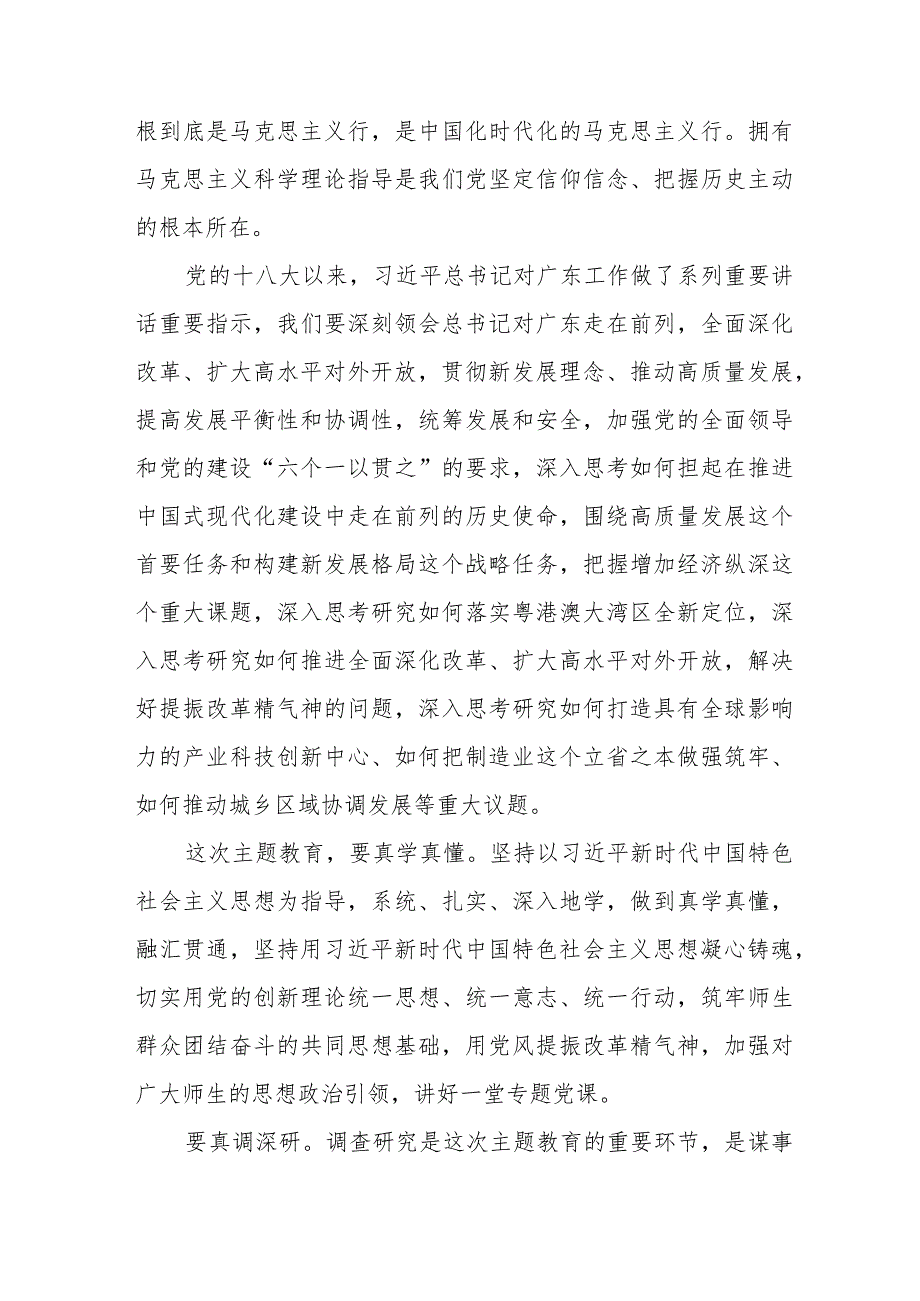 根到底是马克思主义行，是中国化时代化的马克思主义行。拥有
马克思主义科学理论指导是我们党坚定信仰信念、把握历史主动
的根本所在。
党的十八大以来，习近平总书记对广东工作做了系列重要讲
话重要指示，我们要深刻领会总书记对广东走在前列，全面深化
改革、扩大高水平对外开放，贯彻新发展理念、推动高质量发展，
提高发展平衡性和协调性，统筹发展和安全，加强党的全面领导
和党的建设“六个一以贯之”的要求，深入思考如何担起在推进
中国式现代化建设中走在前列的历史使命，围绕高质量发展这个
首要任务和构建新发展格局这个战略任务，把握增加经济纵深这
个重大课题，深入思考研究如何落实粤港澳大湾区全新定位，深
入思考研究如何推进全面深化改革、扩大高水平对外开放，解决
好提振改革精气神的问题，深入思考研究如何打造具有全球影响
力的产业科技创新中心、如何把制造业这个立省之本做强筑牢、
如何推动城乡区域协调发展等重大议题。
这次主题教育，要真学真懂。坚持以习近平新时代中国特色
社会主义思想为指导，系统、扎实、深入地学，做到真学真懂，
融汇贯通，坚持用习近平新时代中国特色社会主义思想凝心铸魂，
切实用党的创新理论统一思想、统一意志、统一行动，筑牢师生
群众团结奋斗的共同思想基础，用党风提振改革精气神，加强对
广大师生的思想政治引领，讲好一堂专题党课。
要真调深研。调查研究是这次主题教育的重要环节，是谋事